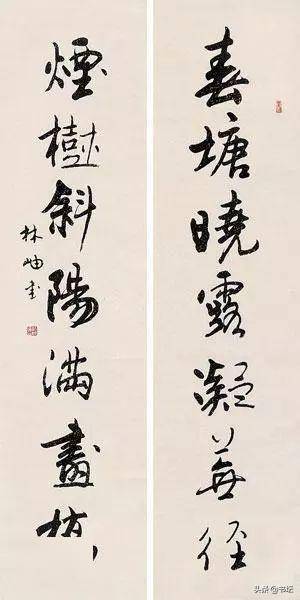 春塘曉露凝蕪徑
煙樹斜陽滿畫
林岫書
头条 @书坛